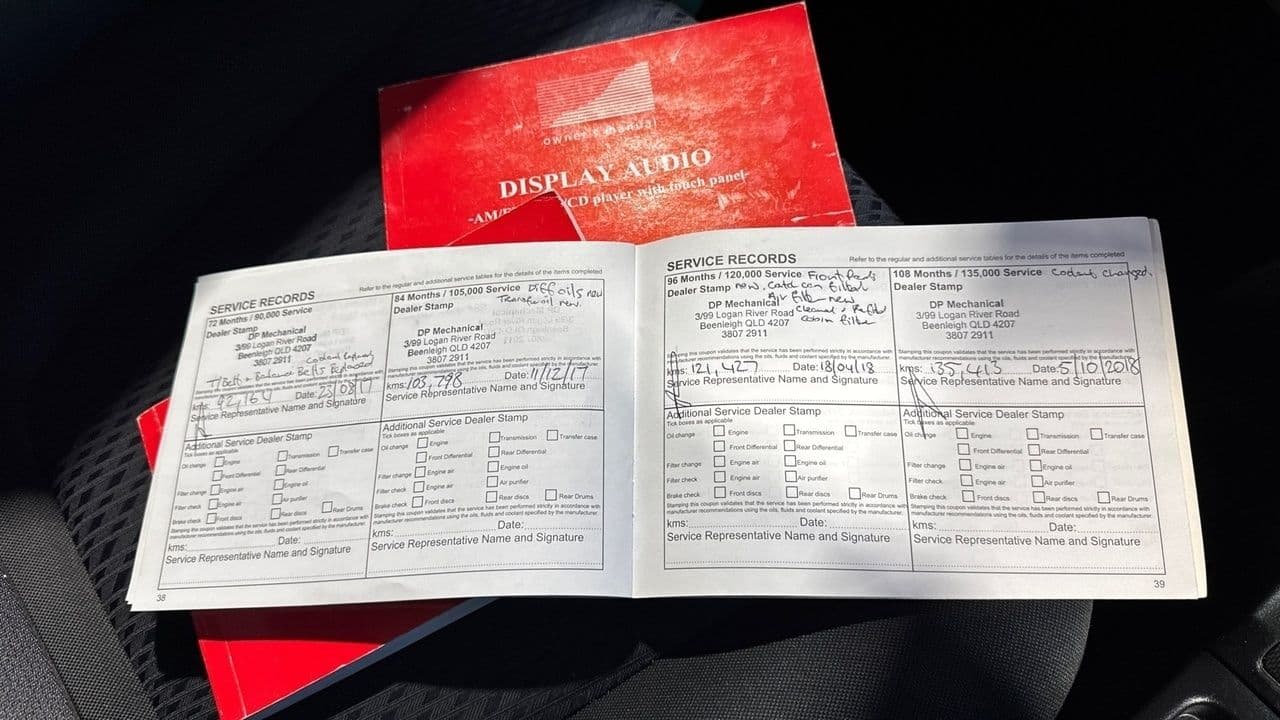 owner's manual
DISPLAY AUDIO
CD player with touch panel-
SERVICE RECORDS
Refer to the regular and additional service tables for the details of the items completed
72 Months / 90,000 Service
Dealer Stamp
DP Mechanical
3/99 Logan River Road
Beenleigh QLD 4207
3807 2911
Balance Belts Replaced
Stamping this coupon validates that the service has been performed strictly in accordance with
kms: 92,160 Date:
Service Representative Name and Signature
Additional Service Dealer Stamp
Tick boxes as applicable
Oil change Engine Transmission Transfer case
Front Differential Rear Differential
Filter change Engine air Engine oil
Filter check Engine air Air purifier
Brake check Front discs Rear discs Rear Drums
Stamping this coupon validates that the service has been performed strictly in accordance with
manufacturer recommendations using the oils, fluids and coolant specified by the manufacturer.
kms: Date:
Service Representative Name and Signature
38
84 Months / 105,000 Service Diff oils new
Dealer Stamp Transfer oil new.
DP Mechanical
3/99 Logan River Road
Beenleigh QLD 4207
3807 2911
Stamping this coupon validates that the service has been performed strictly in accordance with
manufacturer recommendations using the oils, fluids and coolant specified by the manufacturer.
kms: 103,798 Date: 11/12/17
Service Representative Name and Signature
Additional Service Dealer Stamp
Tick boxes as applicable
Oil change Engine Transmission Transfer case
Front Differential Rear Differential
Filter change Engine air Engine oil
Filter check Engine air Air purifier
Brake check Front discs Rear discs Rear Drums
Stamping this coupon validates that the service has been performed strictly in accordance with
manufacturer recommendations using the oils, fluids and coolant specified by the manufacturer.
kms: Date:
Service Representative Name and Signature
SERVICE RECORDS
Refer to the regular and additional service tables for the details of the items completed
96 Months / 120,000 Service Front Pads
Dealer Stamp new. catch can filter
Air Filter new
DP Mechanical
3/99 Logan River Road Cleaned
Beenleigh QLD 4207 cabin filter
3807 2911
Stamping this coupon validates that the service has been performed strictly in accordance with
manufacturer recommendations using the oils, fluids and coolant specified by the manufacturer.
kms: 121,427 Date: 18/04/18
Service Representative Name and Signature
Additional Service Dealer Stamp
Tick boxes as applicable
Oil change Engine Transmission Transfer case
Front Differential Rear Differential
Filter change Engine air Engine oil
Filter check Engine air Air purifier
Brake check Front discs Rear discs Rear Drums
Stamping this coupon validates that the service has been performed strictly in accordance with
manufacturer recommendations using the oils, fluids and coolant specified by the manufacturer.
kms: Date:
Service Representative Name and Signature
108 Months / 135,000 Service Coolant changed.
Dealer Stamp
DP Mechanical
3/99 Logan River Road
Beenleigh QLD 4207
3807 2911
Stamping this coupon validates that the service has been performed strictly in accordance with
manufacturer recommendations using the oils, fluids and coolant specified by the manufacturer.
kms: 135,413 Date: 5/10/2018
Service Representative Name and Signature
Additional Service Dealer Stamp
Tick boxes as applicable
Oil change Engine Transmission Transfer case
Front Differential Rear Differential
Filter change Engine air Engine oil
Filter check Engine air Air purifier
Brake check Front discs Rear discs Rear Drums
Stamping this coupon validates that the service has been performed strictly in accordance with
manufacturer recommendations using the oils, fluids and coolant specified by the manufacturer.
kms: Date:
Service Representative Name and Signature
39